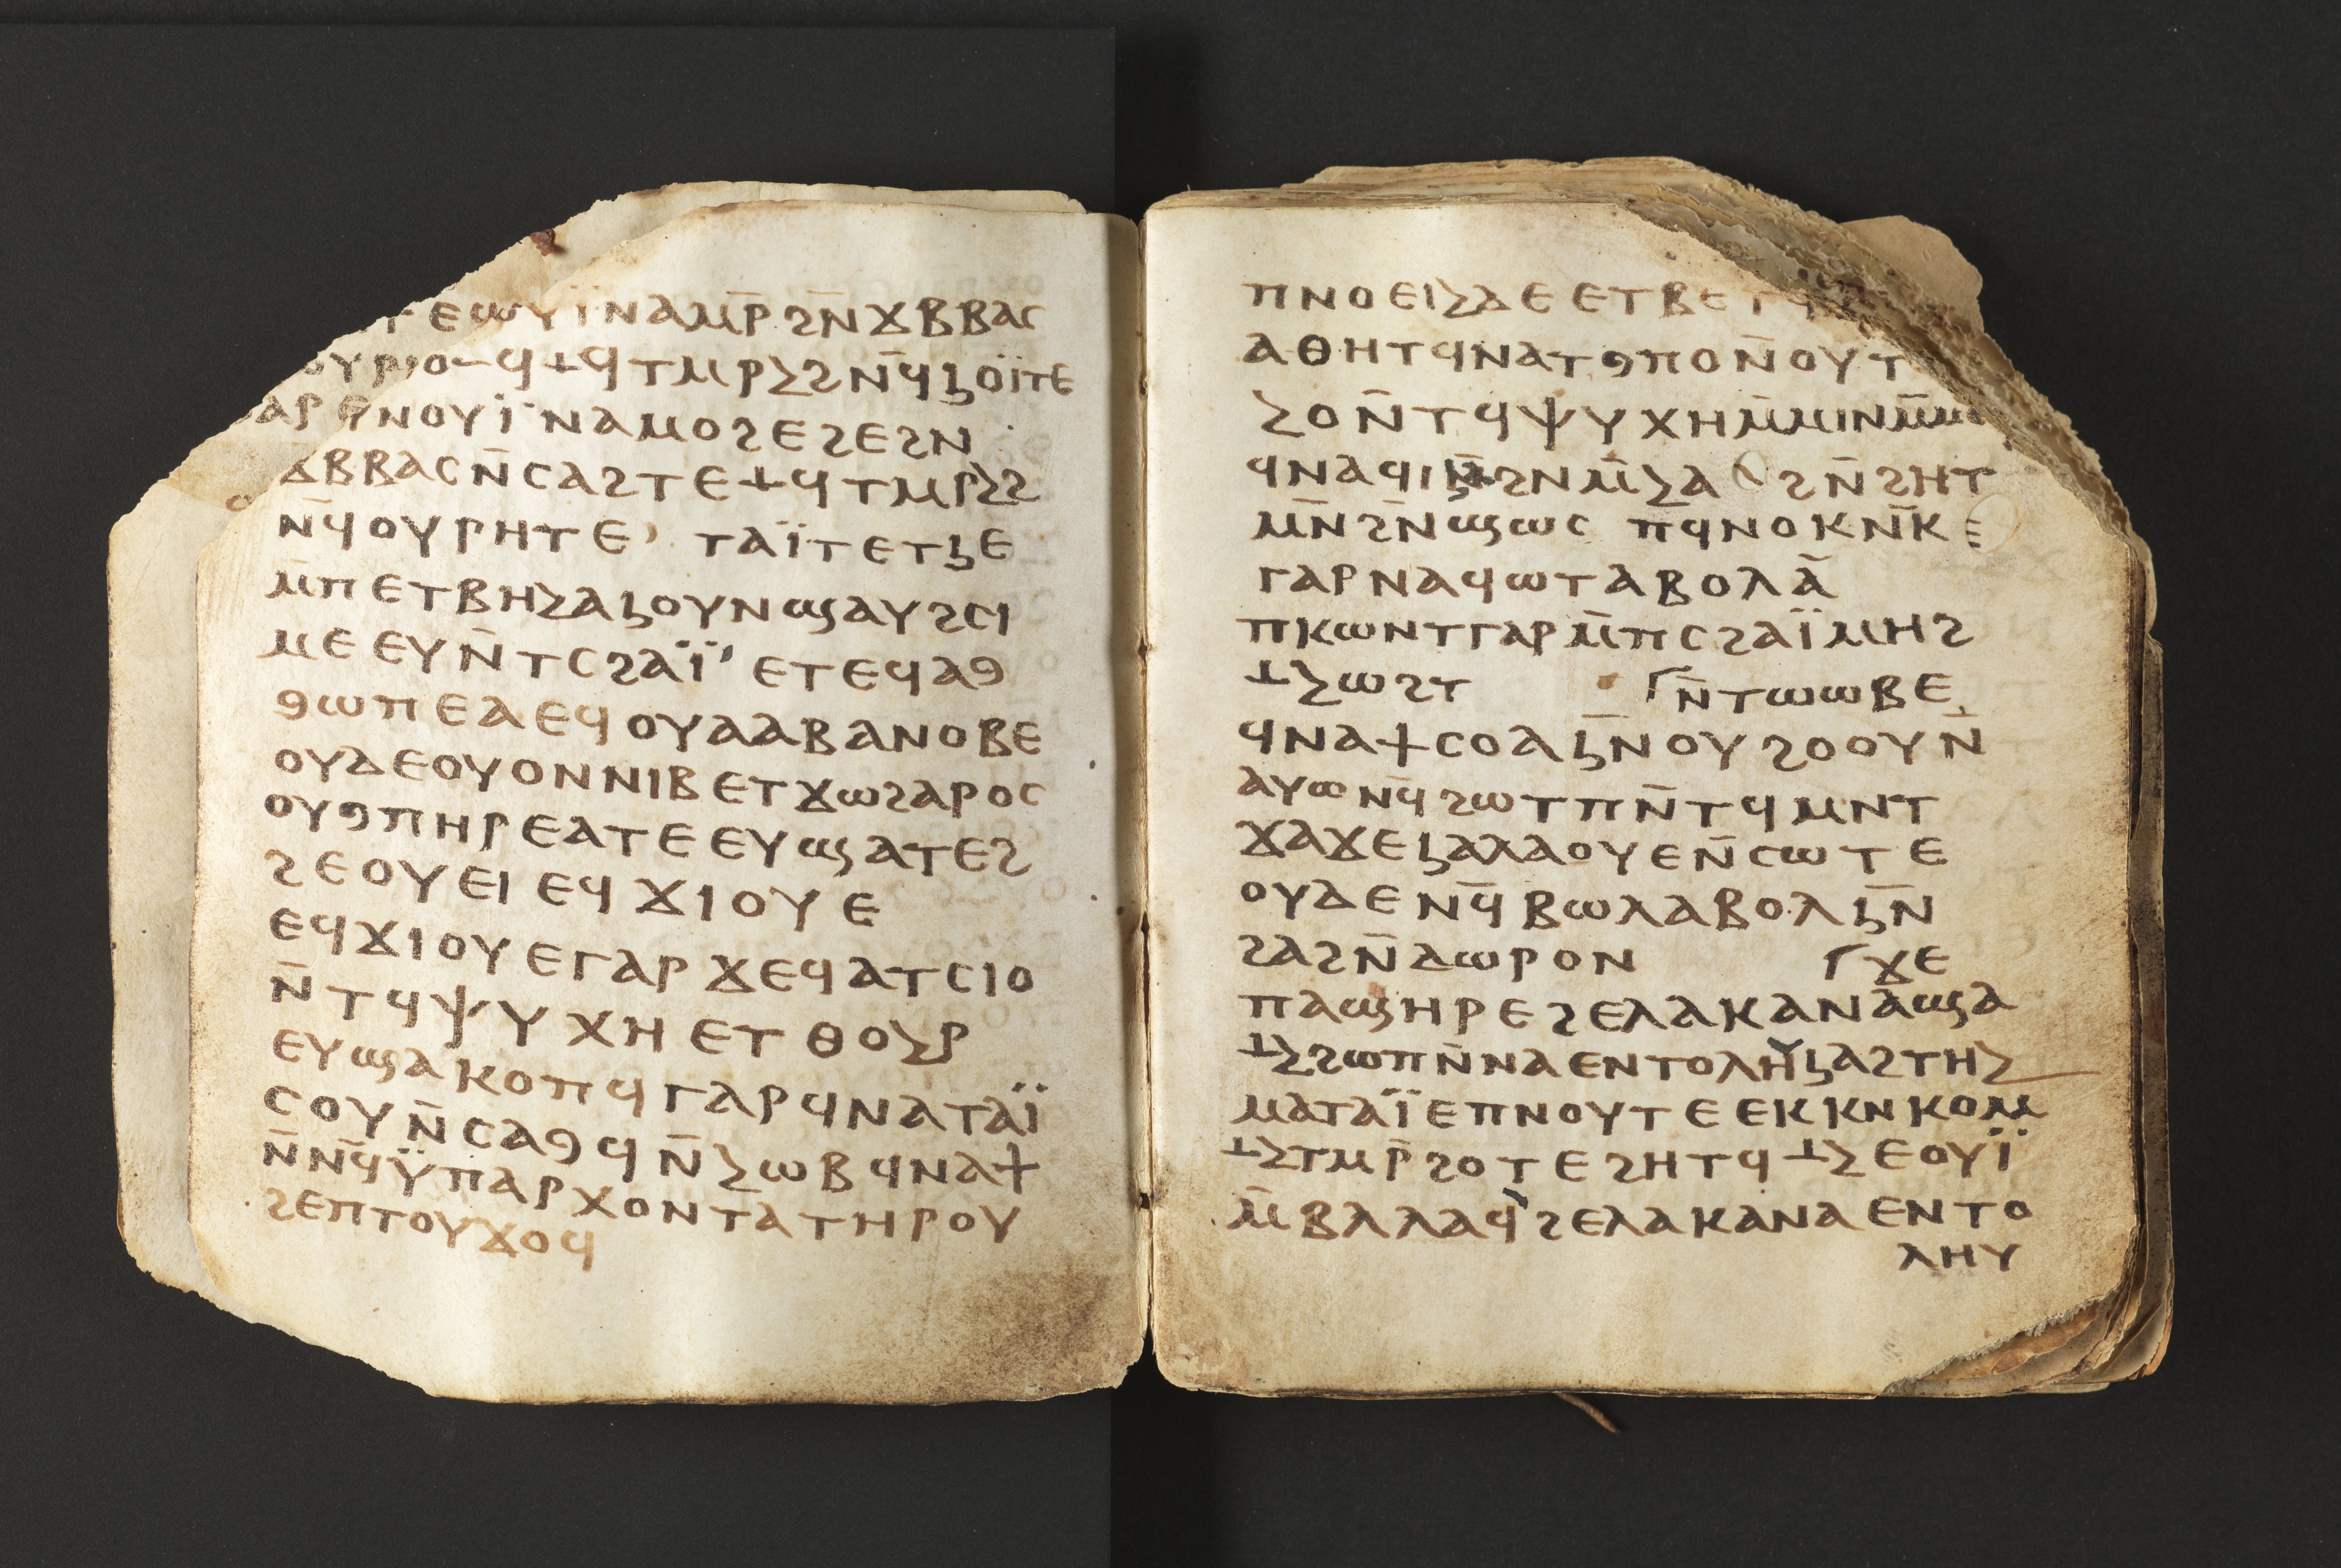 ⲧⲉⲱⲩⲓ̈ⲛⲁⲙⲣ̄ϩⲛ̄ϫⲃⲃⲁⲥ
ⲟⲩⲣⲙⲟⲻϥⲳϥⲧⲙⲣⲹϩⲛ̄ϥⳏⲟⲓ̈ⲧⲉ
ⲁⲣⲉⲛⲟⲩⲓ̈ⲛⲁⲙⲟϩⲉϩⲉϩⲛ
ϫⲃⲃⲁⲥⲛ̄ⲥⲁϩⲧⲉⲳϥⲧⲙⲣⲹϩ
ⲛ̄ϥⲟⲩⲣⲏⲧⲉ ⲧⲁⲓ̈ⲧⲉⲧⳏⲉ
ⲙ̄ⲡⲉⲧⲃⲏⲹⲁⳏⲟⲩⲛϣⲁⲩϩⲥⲓ
ⲙⲉⲉⲩⲛ̄ⲧⲥϩⲁⲓ̈ʼⲉⲧⲉϥⲁⳋ
ⳋⲱⲡⲉⲁⲉϥⲟⲩⲁⲁⲃⲁⲛⲟⲃⲉ
ⲟⲩⲇⲉⲟⲩⲟⲛⲛⲓⲃⲉⲧϫⲱϩⲁⲣⲟⲥ
ⲟⲩⳋⲡⲏⲣⲉⲁⲧⲉⲉⲩϣⲁⲧⲉϩ
ϩⲉⲟⲩⲉⲓⲉϥϫⲓⲟⲩⲉ
ⲉϥϫⲓⲟⲩⲉⲅⲁⲣϫⲉϥⲁⲧⲥⲓⲟ
ⲛ̄ⲧϥⲯⲩⲭⲏⲉⲧⲑⲟⲹⲣ
ⲉⲩϣⲁⲕⲟⲡϥⲅⲁⲣϥⲛⲁⲧⲁⲓ̈
ⲥⲟⲩⲛ̄ⲥⲁⳋϥⲛ̄ⲹⲱⲃϥⲛⲁϯ
ⲛ̄ⲛ̄ϥⲩ̈ⲡⲁⲣⲭⲟⲛⲧⲁⲧⲏⲣⲟⲩ
ϩⲉⲡⲧⲟⲩϫⲟϥ
ⲡⲛⲟⲉⲓⲹⲇⲉⲉⲧⲃⲉⲧ
ⲁⲑⲏⲧϥⲛⲁⲧⳋⲡⲟⲛ̄ⲟⲩⲧ
ⲹⲟⲛ̄ⲧϥⲯⲩⲭⲏⲙ̄ⲙⲓⲛⲙ̄ⲙ
ϥⲛⲁϥⲓⳏϩⲛⲙ̄ⲹⲁ ϩⲛ̄ϩⲏⲧ
ⲙⲛ̄ϩⲛ̄ϣⲱⲥ ⲡϥⲛⲟⲕⲛ̄ⲕⲉ
ⲅⲁⲣⲛⲁϥⲱⲧⲁⲃⲟⲗⲁ̄
ⲡⲕⲱⲛⲧⲅⲁⲣⲙ̄ⲡⲥϩⲁⲓ̈ⲙⲏϩ
ⲳⲹⲱϩⲧ ⲛ̄ⲧⲱⲱⲃⲉ
ϥⲛⲁϯⲥⲟⲁⳏⲛ̄ⲟⲩϩⲟⲟⲩⲛ̄
ⲁⲩⲱⲛ̄ϥϩⲱⲧⲡⲛ̄ⲧϥⲙⲛⲧ
ϫⲁϫⲉⳏⲁⲗⲁⲟⲩⲉⲛ̄ⲥⲱⲧⲉ
ⲟⲩⲇⲉⲛ̄ϥⲃⲱⲗⲁⲃⲟⲗⳏⲛ̄
ϩⲁϩⲛ̄ⲇⲱⲣⲟⲛ ϫⲉ
ⲡⲁϣⲏⲣⲉϩⲉⲗⲁⲕⲁⲛⲁϣⲁ
ⲳⲹϩⲱⲡⲛ̄ⲛⲁⲉⲛⲧⲟⲗⲏⲩⳏⲁϩⲧⲏⲹ
ⲙⲁⲧⲁⲓ̈ⲉⲡⲛⲟⲩⲧⲉⲉⲕⲕⲛⲕⲟⲙ
ⲳⲹⲧⲙⲣ̄ϩⲟⲧⲉϩⲏⲧϥⲳⲹⲉⲟⲩⲓ̈
ⲙ̄ⲃⲗⲗⲁϥϩⲉⲗⲁⲕⲁⲛⲁⲉⲛⲧⲟ
ⲗⲏⲩ